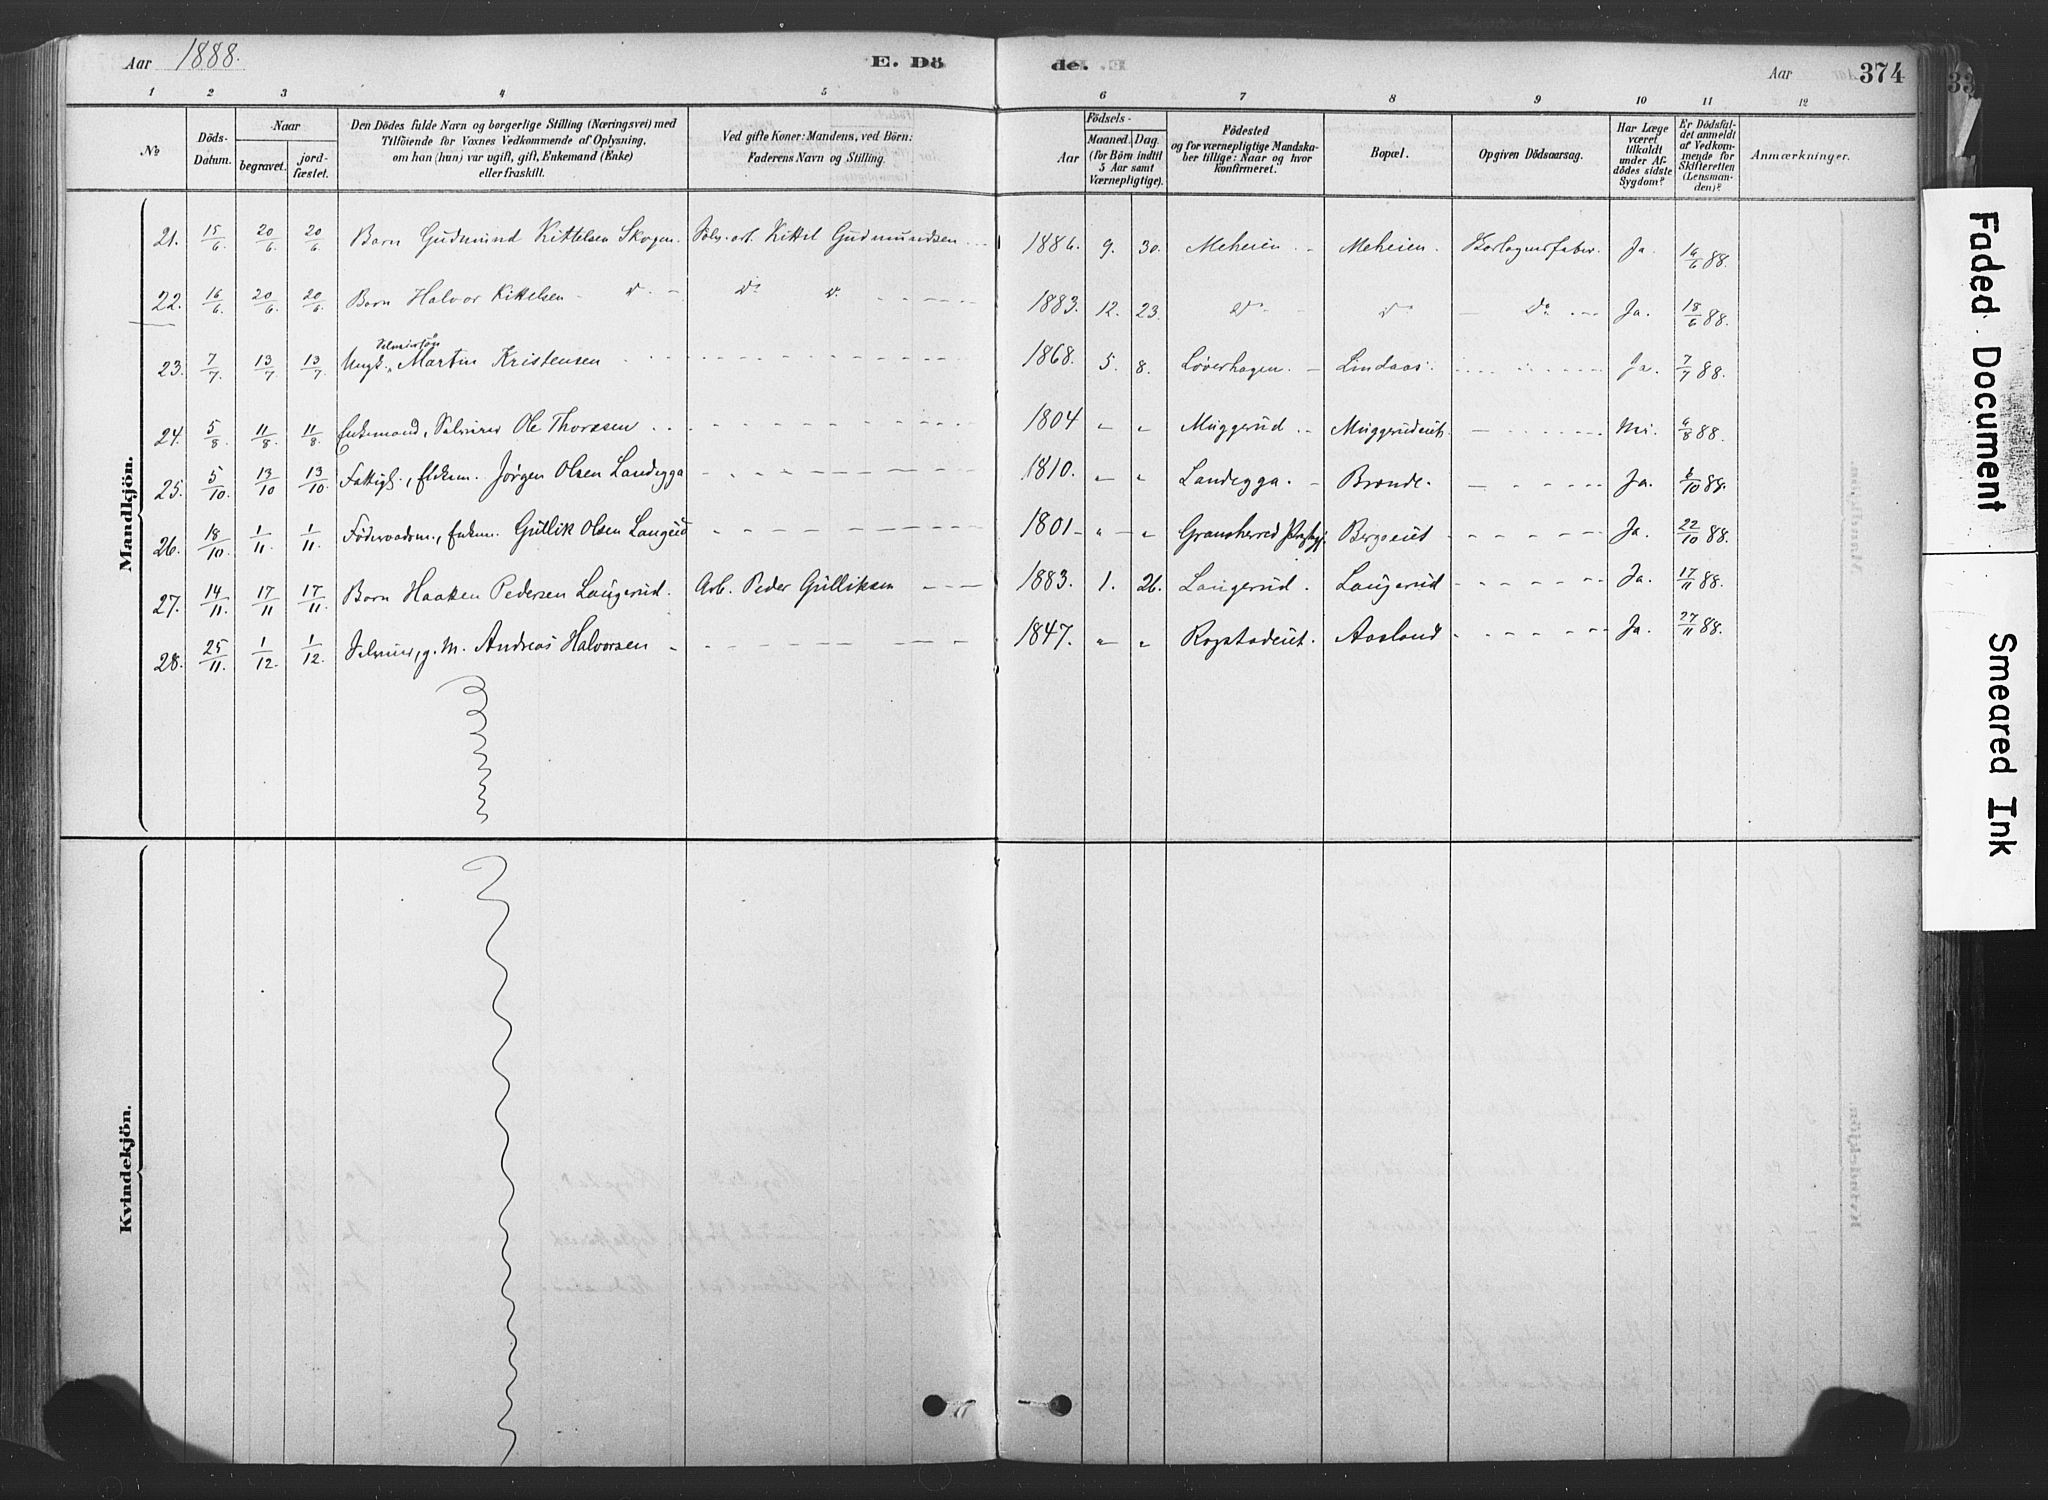 Aar 1888. E. Dö de. Aar 374
1 2 3 4 5 6 7 8 9 10 11 12
No
Döds-Datum.
Naar
begravet. jord-fæstet.
Den Dödes fulde Navn og borgerlige Stilling (Næringsvei) med
Tilföiende for Voxnes Vedkommende af Oplysning,
om han (hun) var ugift, gift, Enkemand (Enke)
eller fraskilt.
Ved gifte Koner: Mandens, ved Börn:
Faderens Navn og Stilling.
Födsels-
Aar Maaned. Dag.
(for Börn indtil
5 Aar samt
Værnepligtige).
Födested
og for værnepligtige Mandska-
ber tillige: Naar og hvor
konfirmeret.
Bopæl.
Opgiven Dödsaarsag.
Har Læge
været
tilkaldt
under Af-
dödes sidste
Sygdom?
Er Dödsfal-
det anmeldt
af Vedkom-
mende for
Skifteretten
(Lensman-
den)?
Anmærkninger.
Mandkjön.
21. 15/6 20/6 20/6 Barn Gudmund Kittelsen Skogen. Kittil Gudmundsen 1886. 9. 30. Meheien Meheien Ja. 16/6 88.
22. 16/6 20/6 20/6 Barn Halvor Kittelsen - do - do do 1883. 12. 23. do do Do Ja. 18/6 88.
23. 7/7 13/7 13/7 Ungk., Martin Kristensen 1868. 5. 8. Løverhagen. Lindaas. Ja. 7/7 88.
24. 5/8 11/8 11/8 Enkemand, Selveier Ole Thoresen 1804 " " Muggerud Muggerudeiet. Nei. 6/8 88.
25. 5/10 13/10 13/10 Fattigl., Enkem. Jørgen Olsen Landegga 1810. " " Landegga. Brænde. Ja. 6/10 88.
26. 18/10 1/11 1/11 Föderaadsm., Enkem. Gullik Olsen Langrud 1801 - " - " Gransherred Præstgj. Bergseiet Ja. 22/10 88.
27. 14/11. 17/11 17/11. Barn Haaken Pedersen Laugerud. Arb. Peder Gulliksen 1883. 1. 26. Laugerud. Laugerud Ja. 17/11 88.
28. 25/11. 1/12. 1/12. Selveier, g. M. Andreas Halvorsen 1847. " " Rogstadeiet. Aasland Ja. 27/11 88.
Kvindekjön.
Faded Document
Smeared Ink